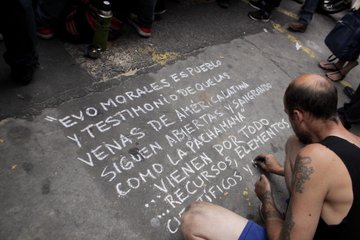 "EVO MORALES ES PUEBLO
Y TESTIMONIO DE QUE LAS
VENAS DE AMÉRICA LATINA
SIGUEN ABIERTAS Y SANGRANDO
COMO LA PACHAMAMA"
... VIENEN POR TODO
... RECURSOS, ELEMENTOS
CIENTÍFICOS Y